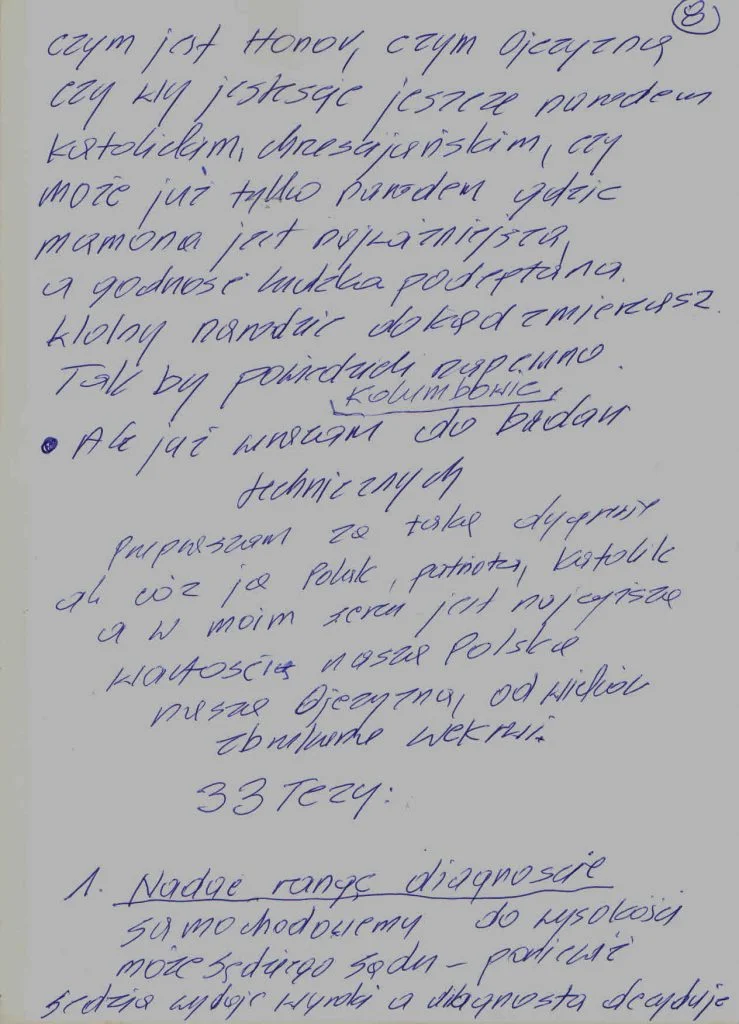 8
czym jest Honor, czym Ojczyzna
czy wy jesteście jeszcze narodem
katolickim, chrześcijańskim, czy
może już tylko narodem gdzie
mamona jest najważniejsza,
a godność ludzka podeptana.
Wolny narodzie dokąd zmierzasz.
Tak by powiedzieli zapewne
Kolumbowie.
• Ale już wracam do badań
technicznych
Przepraszam za taką dygresję
ale cóż ja Polak, patriota, katolik
a w moim sercu jest najwyższą
wartością nasza Polska
nasza Ojczyzna, od wieków
we krwi.
33 Tezy:
1. Nadać rangę diagnoście
samochodowemu do wysokości
może sędziego sądu – ponieważ
sędzia wydaje wyroki a diagnosta decyduje